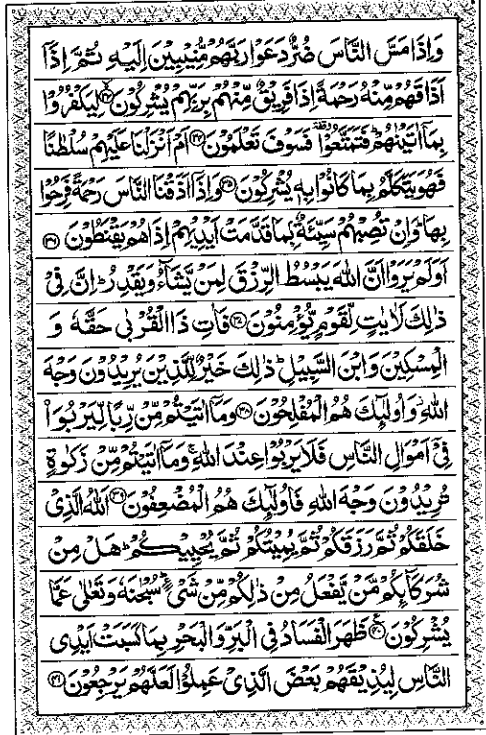 وَاِذَا مَسَّ النَّاسَ ضُرٌّ دَعَوۡا رَبَّهُمۡ مُّنِيۡبِيۡنَ اِلَيۡهِ ثُمَّ اِذَاۤ
اَذَاقَهُمۡ مِّنۡهُ رَحۡمَةً اِذَا فَرِيۡقٌ مِّنۡهُمۡ بِرَبِّهِمۡ يُشۡرِكُوۡنَ ﴿۳۳﴾ لِيَكۡفُرُوۡا
بِمَاۤ اٰتَيۡنٰهُمۡ ؕ فَتَمَتَّعُوۡا ٝ فَسَوۡفَ تَعۡلَمُوۡنَ ﴿۳۴﴾ اَمۡ اَنۡزَلۡنَا عَلَيۡهِمۡ سُلۡطٰنًا
فَهُوَ يَتَكَلَّمُ بِمَا كَانُوۡا بِهٖ يُشۡرِكُوۡنَ ﴿۳۵﴾ وَاِذَاۤ اَذَقۡنَا النَّاسَ رَحۡمَةً فَرِحُوۡا
بِهَا ؕ وَاِنۡ تُصِبۡهُمۡ سَيِّئَةٌۢ بِمَا قَدَّمَتۡ اَيۡدِيۡهِمۡ اِذَا هُمۡ يَقۡنَطُوۡنَ ﴿۳۶﴾
اَوَلَمۡ يَرَوۡا اَنَّ اللّٰهَ يَبۡسُطُ الرِّزۡقَ لِمَنۡ يَّشَآءُ وَيَقۡدِرُ ؕ اِنَّ فِىۡ
ذٰلِكَ لَاٰيٰتٍ لِّقَوۡمٍ يُّؤۡمِنُوۡنَ ﴿۳۷﴾ فَاٰتِ ذَا الۡقُرۡبٰى حَقَّهٗ وَ
الۡمِسۡكِيۡنَ وَابۡنَ السَّبِيۡلِ ؕ ذٰلِكَ خَيۡرٌ لِّلَّذِيۡنَ يُرِيۡدُوۡنَ وَجۡهَ
اللّٰهِ وَاُولٰٓئِكَ هُمُ الۡمُفۡلِحُوۡنَ ﴿۳۸﴾ وَمَاۤ اٰتَيۡتُمۡ مِّنۡ رِّبًا لِّيَرۡبُوَا۟
فِىۡۤ اَمۡوَالِ النَّاسِ فَلَا يَرۡبُوۡا عِنۡدَ اللّٰهِ ۚ وَمَاۤ اٰتَيۡتُمۡ مِّنۡ زَكٰوةٍ
تُرِيۡدُوۡنَ وَجۡهَ اللّٰهِ فَاُولٰٓئِكَ هُمُ الۡمُضۡعِفُوۡنَ ﴿۳۹﴾ اَللّٰهُ الَّذِىۡ
خَلَقَكُمۡ ثُمَّ رَزَقَكُمۡ ثُمَّ يُمِيۡتُكُمۡ ثُمَّ يُحۡيِيۡكُمۡ ؕ هَلۡ مِنۡ
شُرَكَآئِكُمۡ مَّنۡ يَّفۡعَلُ مِنۡ ذٰلِكُمۡ مِّنۡ شَىۡءٍ ؕ سُبۡحٰنَهٗ وَتَعٰلٰى عَمَّا
يُشۡرِكُوۡنَ ﴿۴۰﴾ ظَهَرَ الۡفَسَادُ فِى الۡبَرِّ وَالۡبَحۡرِ بِمَا كَسَبَتۡ اَيۡدِى
النَّاسِ لِيُذِيۡقَهُمۡ بَعۡضَ الَّذِىۡ عَمِلُوۡا لَعَلَّهُمۡ يَرۡجِعُوۡنَ ﴿۴۱﴾